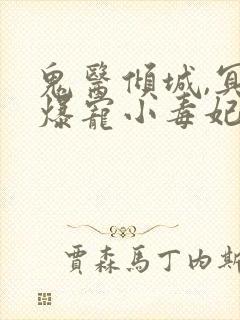 鬼醫傾城,冥
爆寵小毒妃
賈森馬丁內斯